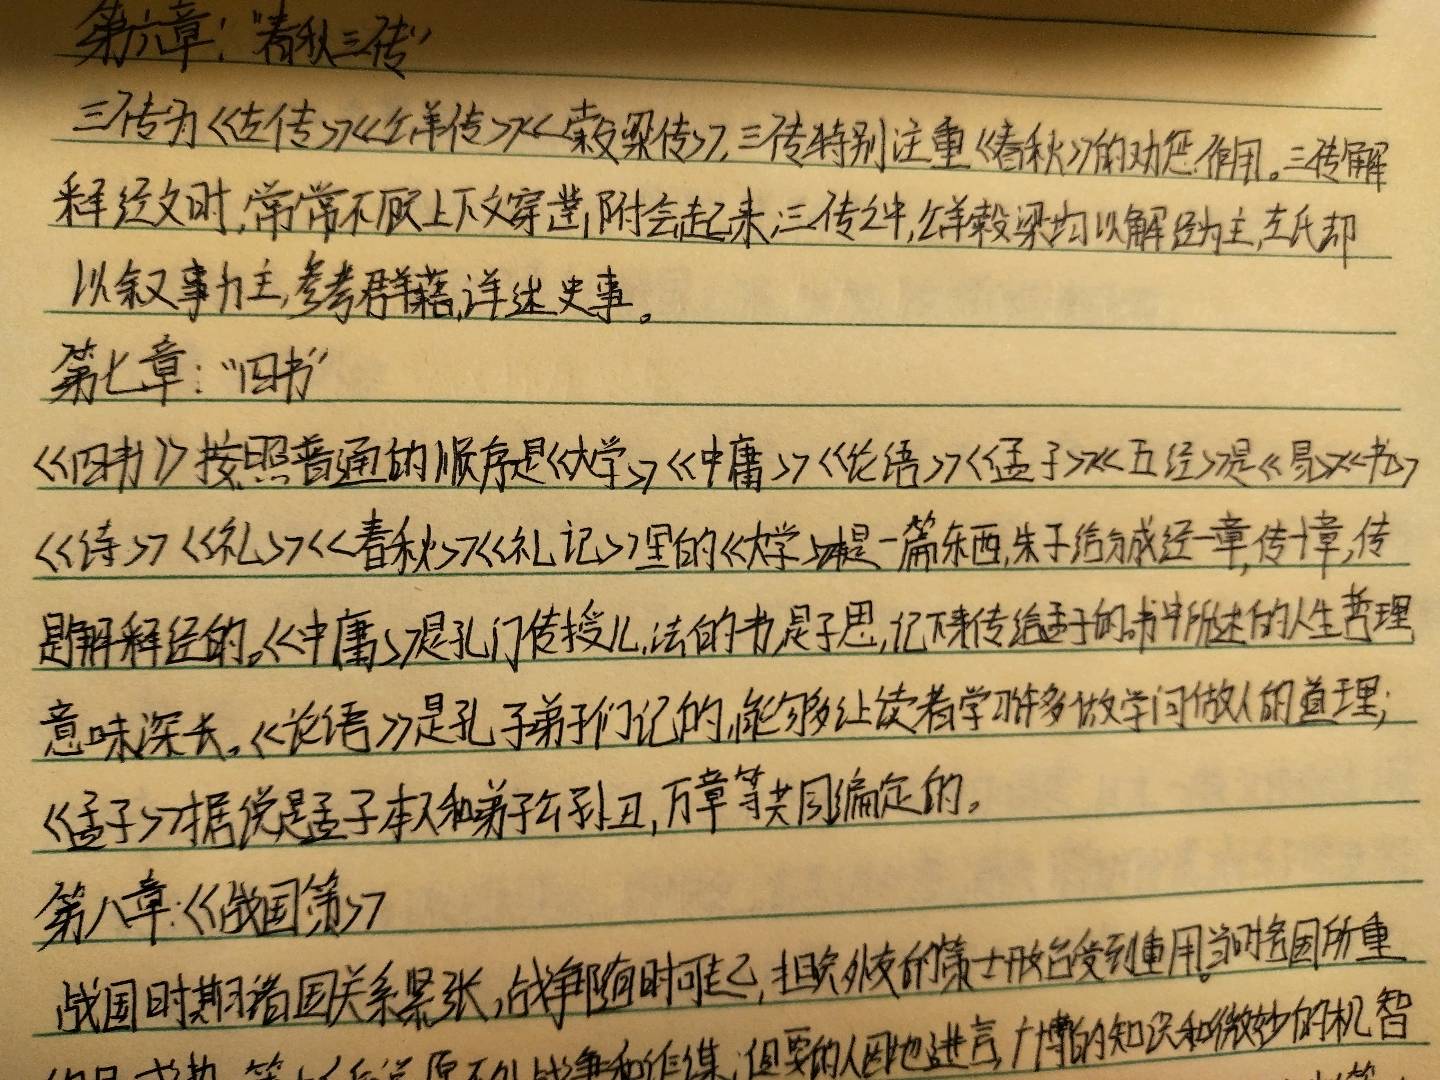 第六章：“春秋三传”
三传为《左传》《公羊传》《穀梁传》,三传特别注重《春秋》的劝惩作用。三传解
释经文时,常常不顾上下文穿凿附会起来,三传之中,公羊穀梁均以解经为主,左氏却
以叙事为主,参考群籍,详述史事。
第七章：“四书”
《四书》按照普通的顺序是《大学》《中庸》《论语》《孟子》《五经》是《易》《书》
《诗》《礼》《春秋》《礼记》里的《大学》本是一篇东西,朱子给分成经一章,传十章,传
是解释经的。《中庸》是孔门传授心法的书,是子思记下来传给孟子的。书中所述的人生哲理
意味深长。《论语》是孔子弟子们记的,能够让读者学习许多做学问做人的道理;
《孟子》据说是孟子本人和弟子公孙丑,万章等共同编定的。
第八章:《战国策》
战国时期诸国关系紧张,战争随时可起,担负外交的策士开始受到重用。当时各国所重
的是 战争和 谋,但要的人因地进言,广博的知识和微妙的机智